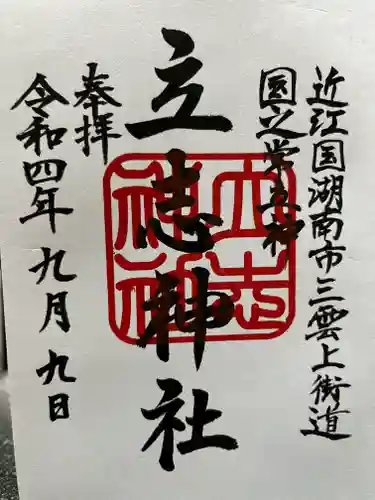 近江国湖南市三雲上街道
国之常立神
立志神社
奉拝
令和四年九月九日
立志
神社